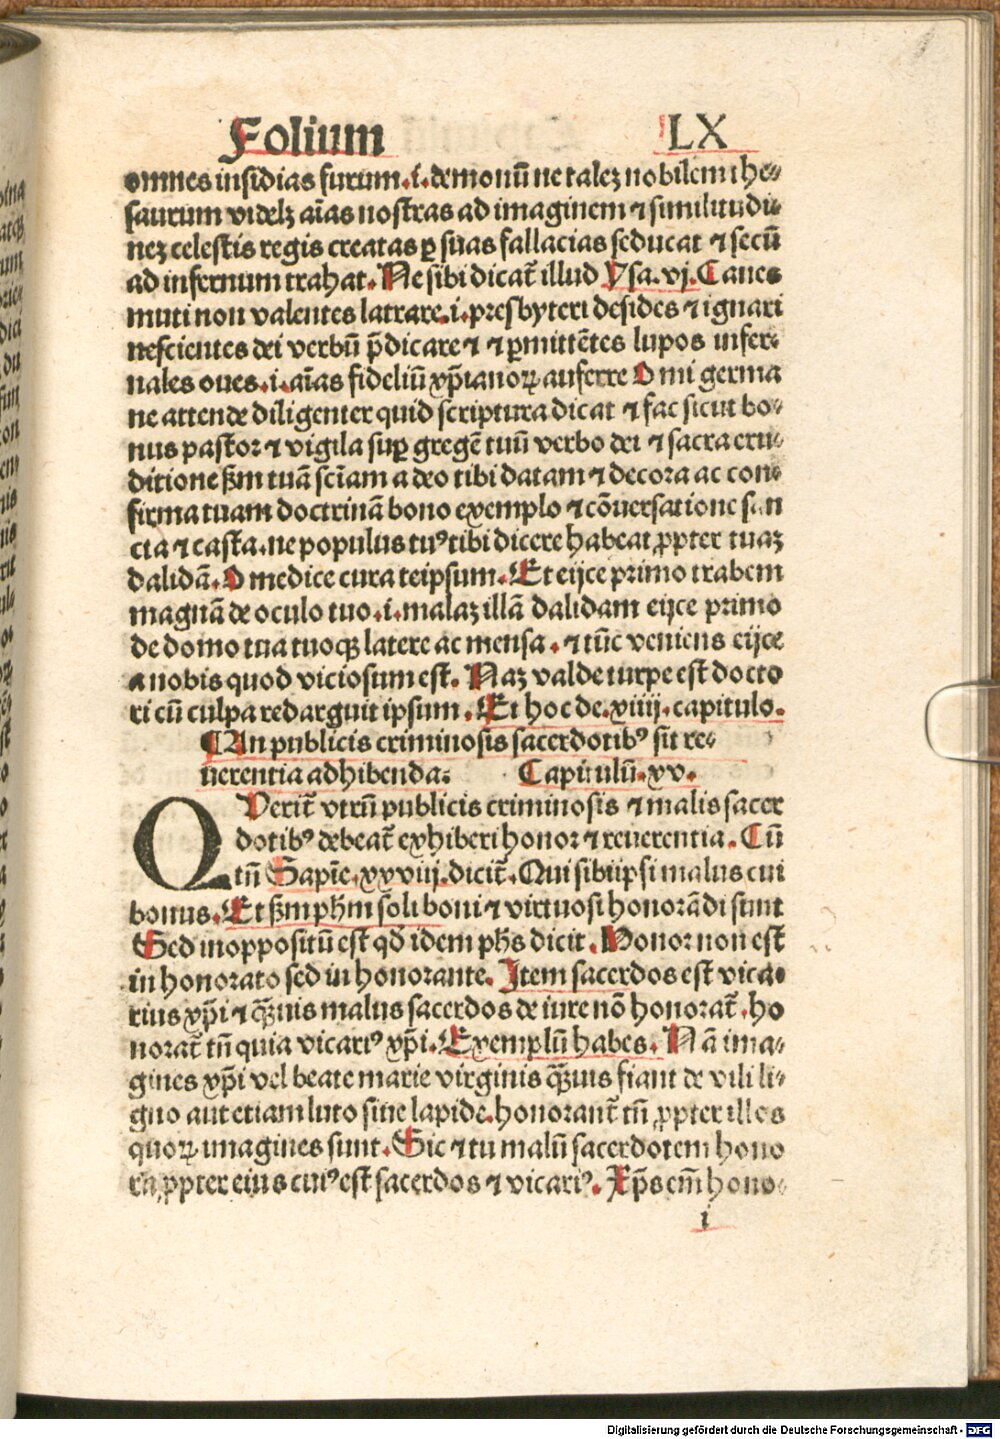 Folium LX
omnes insidias furum .i. demonū ne talez nobilem the⸗
saurum videlꝫ aīas nostras ad imaginem ⁊ similitudi⸗
nez celestis regis creatas ꝑ suas fallacias seducat ⁊ secū
ad infernum trahat. Ne sibi dicat̄ illud Ysa. vj. Canes
muti non valentes latrare .i. presbyteri desides ⁊ ignari
nescientes dei verbū p̄dicare ⁊ ⁊ ꝑmittētes lupos infer⸗
nales oues .i. aīas fideliū xp̄ianoꝝ auferre O mi germa
ne attende diligenter quid scriptura dicat ⁊ fac sicut bo⸗
nus pastor ⁊ vigila suꝑ gregē tuū verbo dei ⁊ sacra eru⸗
ditione ẜm tuā sciam a deo tibi datam ⁊ decora ac con⸗
firma tuam doctrinā bono exemplo ⁊ cōuersatione san
cta ⁊ casta. ne populus tuꝰ tibi dicere habeat ꝓpter tuaz
dalidā. O medice cura teipsum. Et eijce primo trabem
magnā de oculo tuo .i. malaz illā dalidam eijce primo
de domo tua tuoqꝫ latere ac mensa. ⁊ tūc veniens eijce
a nobis quod viciosum est. Naz valde turpe est docto
ri cū culpa redarguit ipsum. Et hoc de .xiiij. capitulo.
¶ An publicis criminosis sacerdotibꝰ sit re⸗
uerentia adhibenda. Capitulū .xv.
QVerit̄ vtrū publicis criminosis ⁊ malis sacer
dotibꝰ debeat̄ exhiberi honor ⁊ reuerentia. Cū
tn̄ Sapīe. xxviij. dicit̄. Qui sibiipsi malus cui
bonus. Et ẜm ph̄m soli boni ⁊ virtuosi honorādi sunt
Sed in oppositū est qd̄ idem ph̄s dicit. Honor non est
in honorato sed in honorante. Item sacerdos est vica⸗
rius xp̄i ⁊ qꝫuis malus sacerdos de iure nō honorat̄. ho
norat̄ tn̄ quia vicariꝰ xp̄i. Exemplū habes. Nā ima⸗
gines xp̄i vel beate marie virginis qꝫuis fiant de vili li⸗
gno aut etiam luto siue lapide. honorant̄ tn̄ ꝓpter illos
quoꝝ imagines sunt. Sic ⁊ tu malū sacerdotem hono
ra ꝓpter eius cuiꝰ est sacerdos ⁊ vicariꝰ. Xp̄s em̄ hono⸗
i
Digitalisierung gefördert durch die Deutsche Forschungsgemeinschaft - DFG